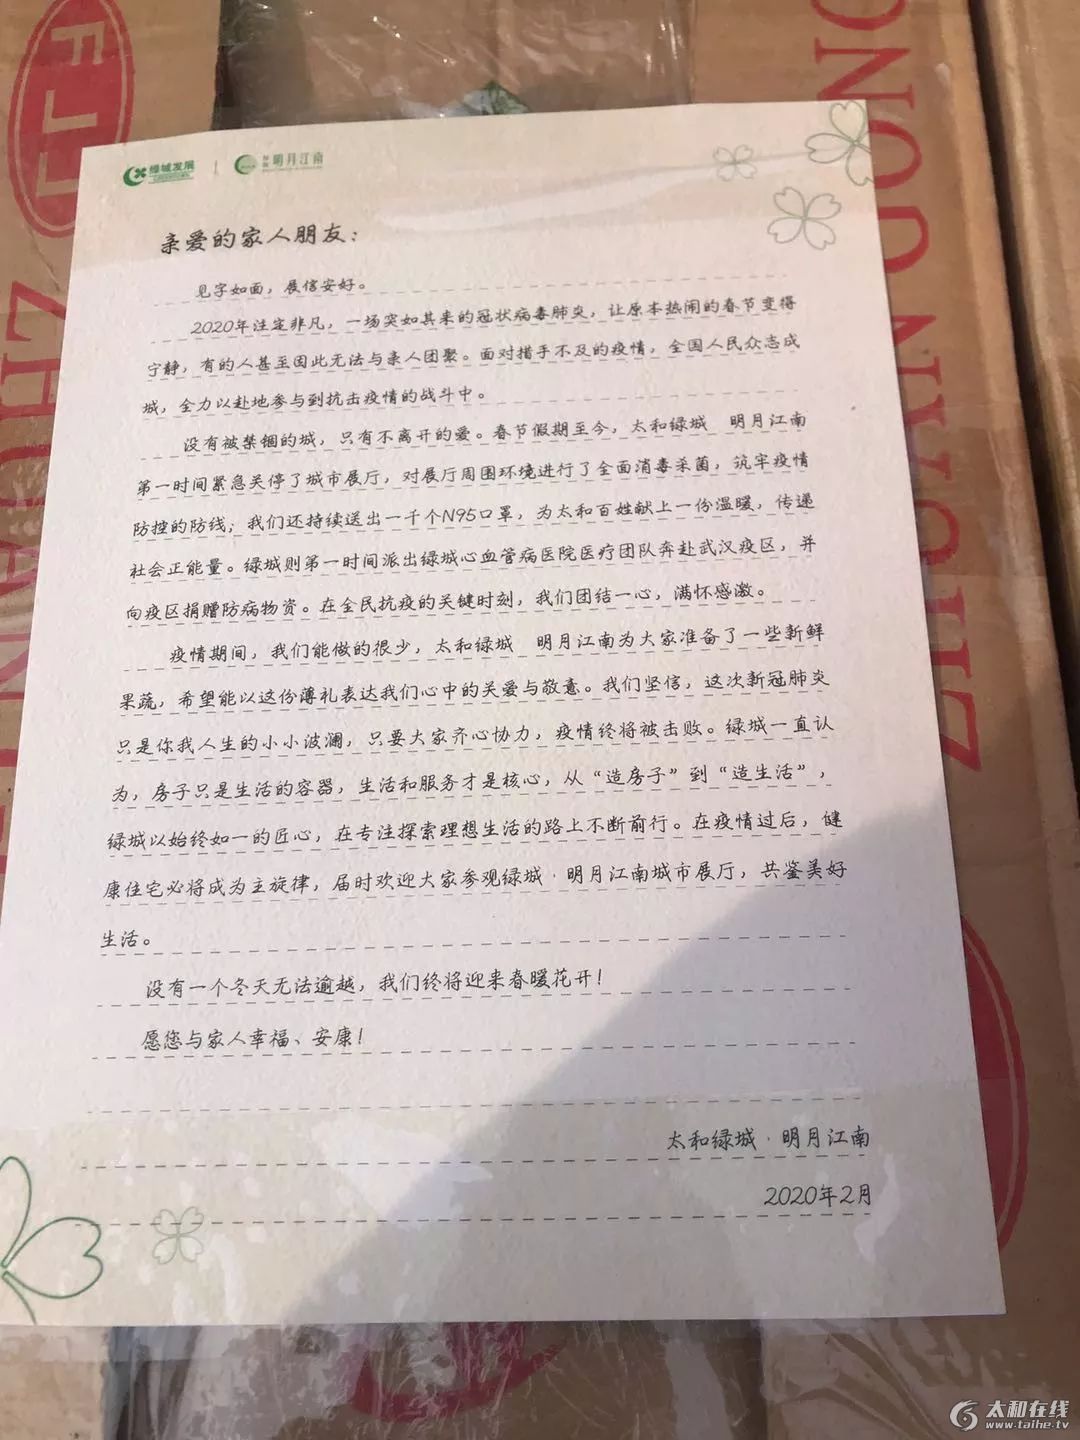 FJL
ZHUAN
ONOD NYOILZ
绿城发展
绿城 明月江南
亲爱的家人朋友：
见字如面，展信安好。
2020年注定非凡，一场突如其来的冠状病毒肺炎，让原本热闹的春节变得
宁静，有的人甚至因此无法与亲人团聚。面对措手不及的疫情，全国人民众志成
城，全力以赴地参与到抗击疫情的战斗中。
没有被禁锢的城，只有不离开的爱。春节假期至今，太和绿城 明月江南
第一时间紧急关停了城市展厅，对展厅周围环境进行了全面消毒杀菌，筑牢疫情
防控的防线；我们还持续送出一千个N95口罩，为太和百姓献上一份温暖，传递
社会正能量。绿城则第一时间派出绿城心血管病医院医疗团队奔赴武汉疫区，并
向疫区捐赠防病物资。在全民抗疫的关键时刻，我们团结一心，满怀感激。
疫情期间，我们能做的很少，太和绿城 明月江南为大家准备了一些新鲜
果蔬，希望能以这份薄礼表达我们心中的关爱与敬意。我们坚信，这次新冠肺炎
只是你我人生的小小波澜，只要大家齐心协力，疫情终将被击败。绿城一直认
为，房子只是生活的容器，生活和服务才是核心，从“造房子”到“造生活”，
绿城以始终如一的匠心，在专注探索理想生活的路上不断前行。在疫情过后，健
康住宅必将成为主旋律，届时欢迎大家参观绿城·明月江南城市展厅，共鉴美好
生活。
没有一个冬天无法逾越，我们终将迎来春暖花开！
愿您与家人幸福、安康！
太和绿城·明月江南
2020年2月
太和在线
www.taihe.tv